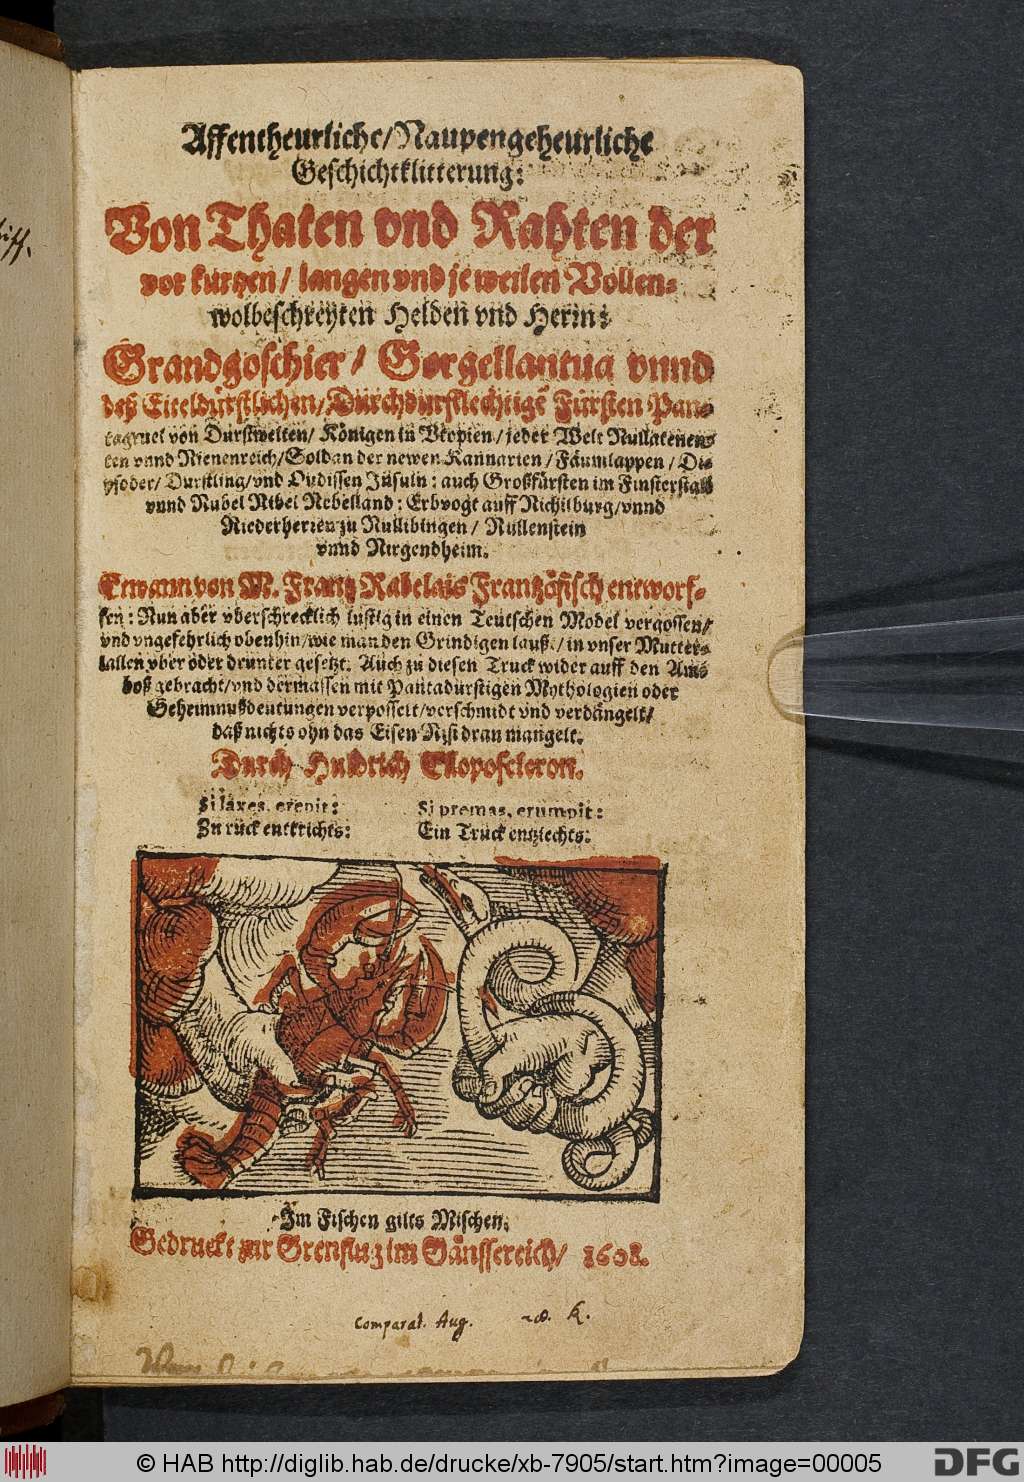 iff.
Affentheurliche/Naupengeheurliche
Geschichtklitterung:
Von Thaten vnd Rahten der
vor kurtzen/ langen vnd je weilen Vollen-
wolbeschreyten Helden vnd Herrn:
Grandgoschier/ Gorgellantua vnnd
deß Eiteldürstlichen/ Durchdurstlechtigē Fürsten Pan-
tagruel von Durstwelten/ Königen in Vtopien/ jeder Welt Nullatenen-
ten vnnd Nienenreich/ Soldan der newen Kannarien/ Fäumlappen/ Di-
psoder/ Durstling/ vnd Oudissen Insuln: auch Großfürsten im Finsterstall
vnnd Nubel Nibel Nebelland: Erbvogt auff Nichilburg/ vnnd
Niederherren zu Nullibingen/ Nullenstein
vnnd Nirgendheim.
Etwann von M. Frantz Rabelais Frantzösisch entworf-
fen: Nun aber vberschrecklich lustig in einen Teutschen Model vergossen/
vnd vngefehrlich obenhin/ wie man den Grindigen laußt/ in vnser Mutter-
lallen vber oder drunter gesetzt. Auch zu diesen Truck wider auff den Am-
boß gebracht/ vnd dermassen mit Pantadurstigen Mythologien oder
Geheimnußdeutungen verposselt/ verschmidt vnd verdängelt/
daß nichts ohn das Eisen Nisi dran mangelt.
Durch Huldrich Elloposcleron.
Si laxes, erepit: Si premas, erumpit:
Zu ruck entkrichts: Ein Truck entziechts:
Im Fischen gilts Mischen.
Gedruckt zur Grenflug im Gänssereich/ 1608.
Comparat. Aug. K.
© HAB http://diglib.hab.de/drucke/xb-7905/start.htm?image=00005
DFG